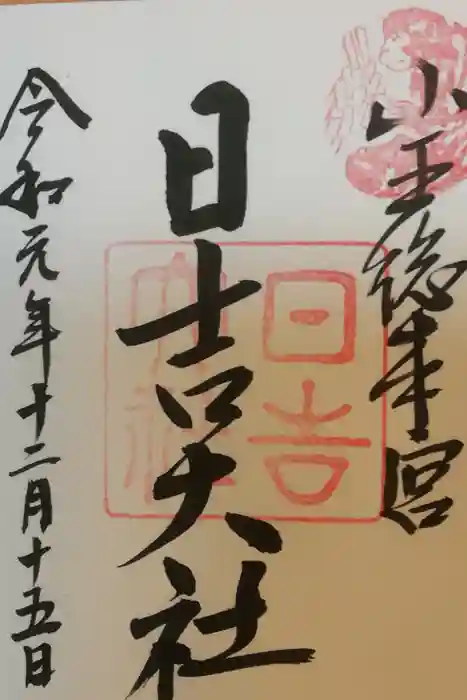 山王総本宮
日吉大社
日吉大社
令和元年十二月十五日